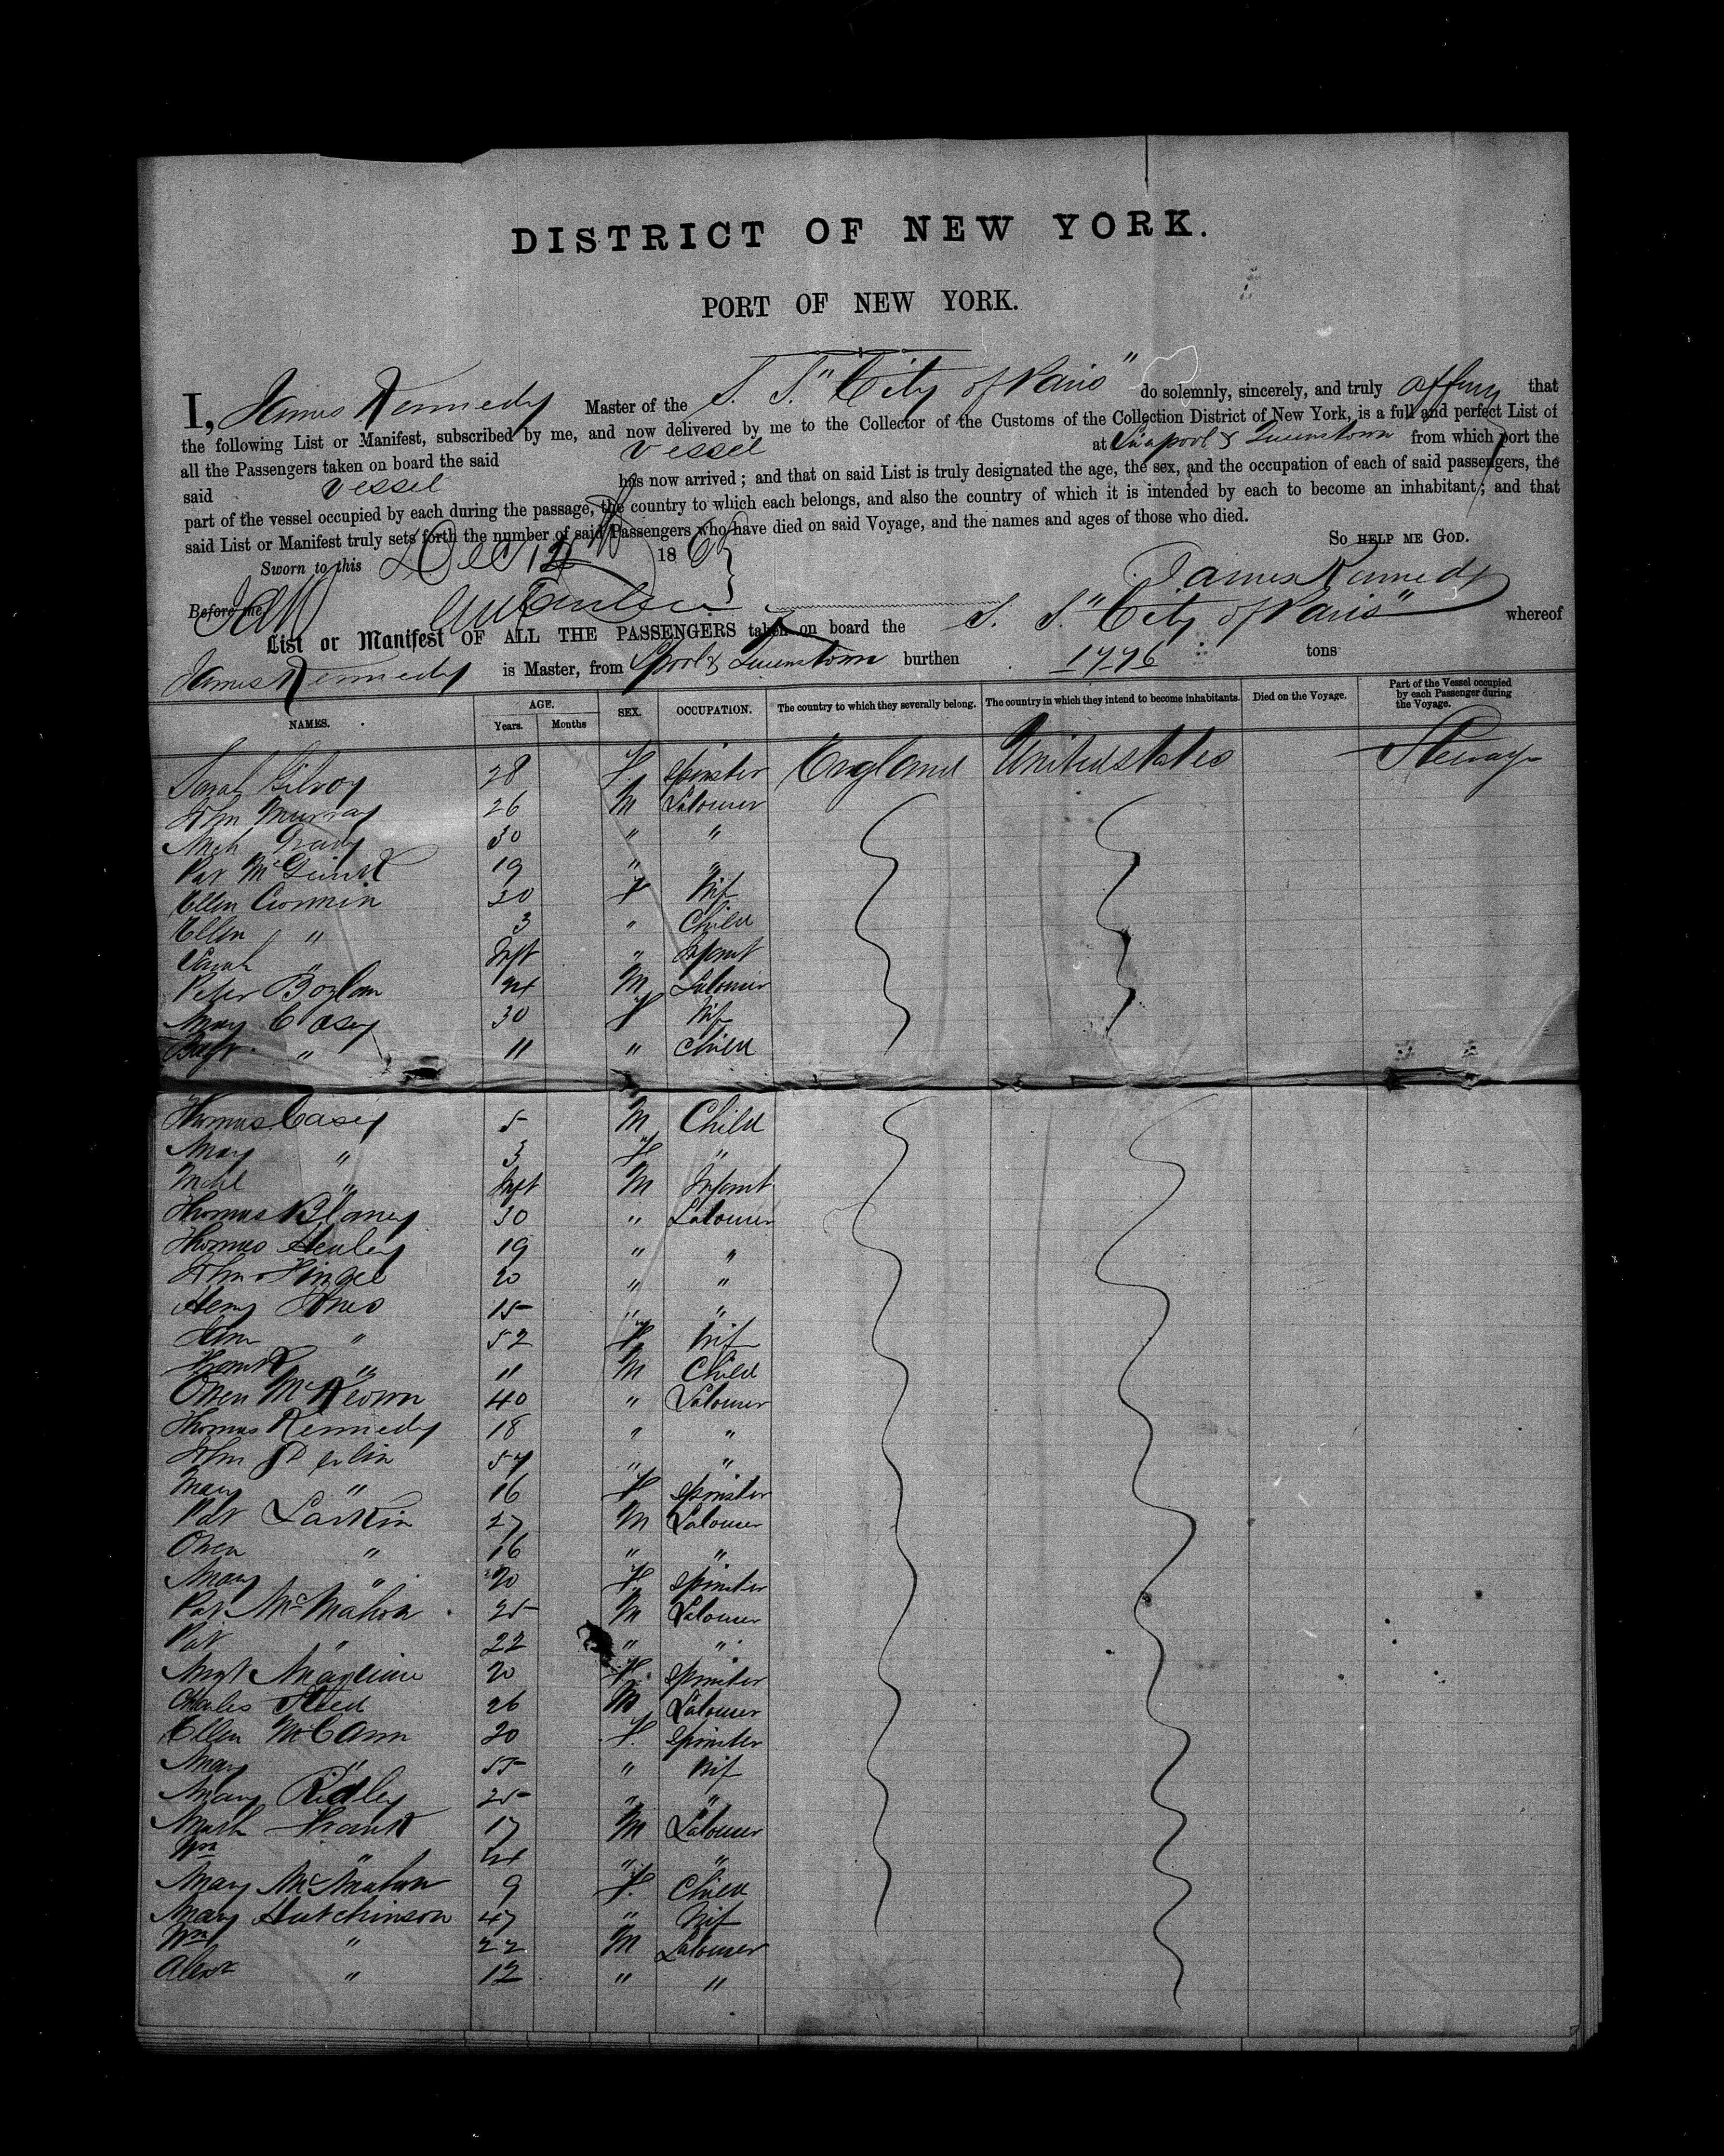 DISTRICT OF NEW YORK.
PORT OF NEW YORK.
I, James Kennedy Master of the S. S. "City of Paris" do solemnly, sincerely, and truly affirm that
the following List or Manifest, subscribed by me, and now delivered by me to the Collector of the Customs of the Collection District of New York, is a full and perfect List of
all the Passengers taken on board the said vessel at Liverpool & Queenstown from which port the
said vessel has now arrived; and that on said List is truly designated the age, the sex, and the occupation of each of said passengers, the
part of the vessel occupied by each during the passage, the country to which each belongs, and also the country of which it is intended by each to become an inhabitant; and that
said List or Manifest truly sets forth the number of said Passengers who have died on said Voyage, and the names and ages of those who died.
So HELP ME GOD.
Sworn to this Dec 12th 186
James Kennedy
Before me
List or Manifest OF ALL THE PASSENGERS taken on board the S. S. "City of Paris" whereof
James Kennedy is Master, from Lpool & Queenstown burthen 1776 tons
NAMES. AGE. Years. Months SEX. OCCUPATION. The country to which they severally belong. The country in which they intend to become inhabitants. Died on the Voyage. Part of the Vessel occupied by each Passenger during the Voyage.
Sarah Gilroy 28 F. Spinster England United States Steerage
John Murray 26 M Labourer
Mich Grady 30 " "
Pat McGuirk 19 " "
Ellen Cronnin 30 F Wife
Ellen " 3 " Child
Sarah " Inft " Infant
Peter Boylan 24 M Labourer
Mary Casey 30 F Wife
" 11 " Child
Thomas Casey 5 M Child
Mary " 3 F "
Michl " Inft M Infant
Thomas Blaney 30 " Labourer
Thomas Henley 19 " "
John 20 " "
Henry Jones 15 " "
" 52 F Wife
Frank " 11 M Child
Owen McKeown 40 " Labourer
Thomas Kennedy 18 " "
John 57 " "
Mary " 16 F Spinster
Pat Larkin 27 M Labourer
Owen " 16 " "
Mary " 20 F. Spinster
Pat McMahon 25 M Labourer
Pat " 22 " "
Margt 20 F. Spinster
Charles Steed 26 M Labourer
Ellen McCann 20 F. Spinster
Mary " 55 " Wife
Mary Ridley 25 " "
Mark Frank 17 M Labourer
Wm " 24 " "
Mary McMahon 9 F. Child
Mary Hutchinson 47 " Wife
Wm " 22 M Labourer
Alexr " 12 " "